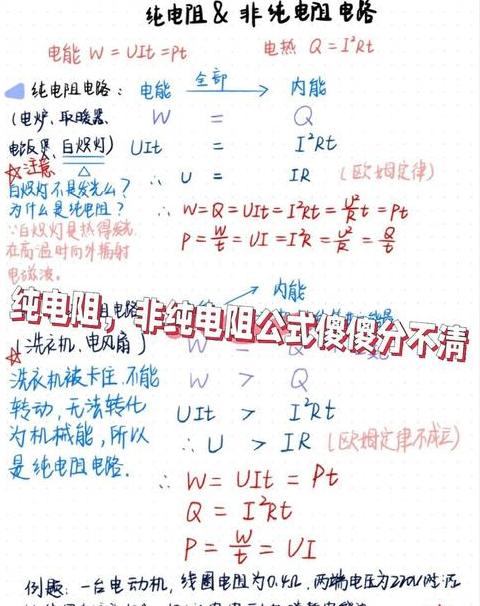 纯电阻 & 非纯电阻电路
电能 W = UIt = Pt 电热 Q = I²Rt
纯电阻电路: 电能 全部 → 内能
(电炉、取暖器、 W = Q
电饭煲、白炽灯) UIt = I²Rt
☆注意 ∴ U = IR (欧姆定律)
白炽灯不是发光么?
为什么是纯电阻? ∴ W=Q=UIt=I²Rt=U²/R t=Pt
∵白炽灯是热得发光 P=W/t=UI=I²R=U²/R=Q/t
在高温时向外辐射
电磁波。
内能
纯电阻,非纯电阻公式傻傻分不清
(洗衣机、电风扇) W = Q
洗衣机被卡住、不能 W > Q
转动,无法转化 UIt > I²Rt
为机械能,所以 ∴ U > IR (欧姆定律不成立)
是纯电阻电路. ∴ W = UIt = Pt
Q = I²Rt
P = W/t = UI
例题: 一台电动机,线圈电阻为0.4Ω,两端电压为220V时